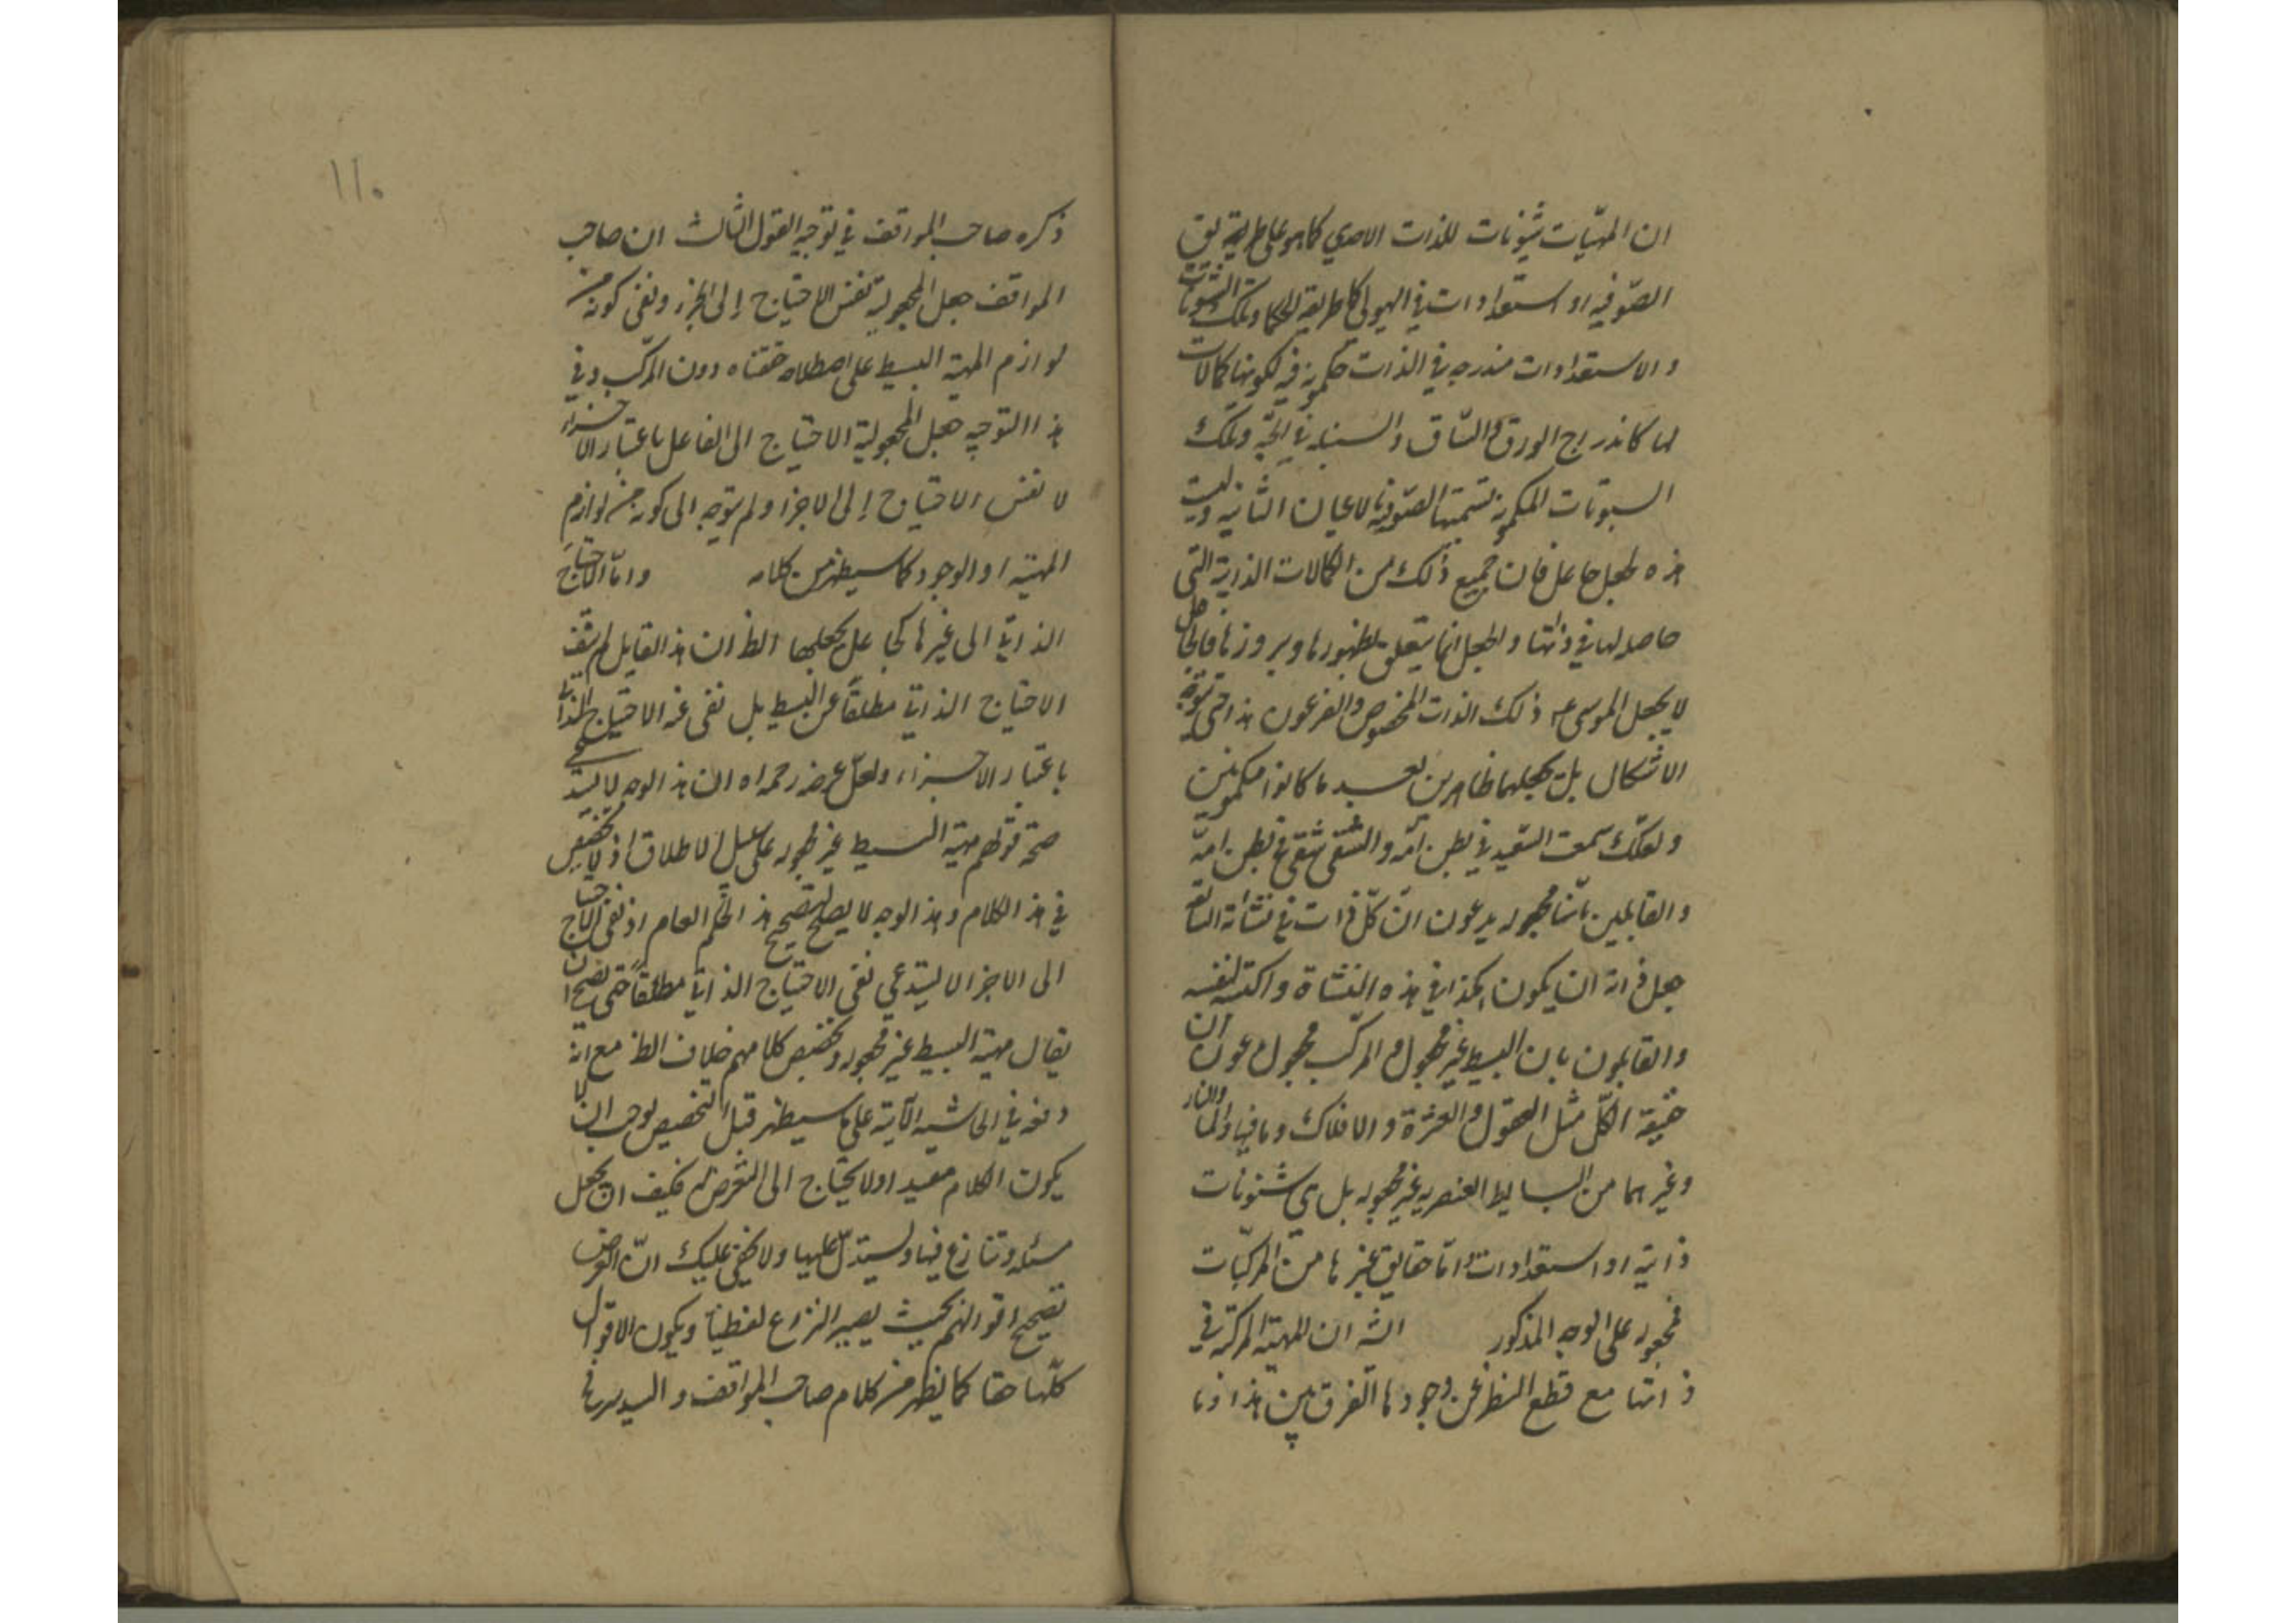 ان المهيّات شئونات للذات الاحدي كما هو على طريقة
الصّوفيه او استعدادات في الهيولى كما طريقة الحكما وتلك الشئونات
والاستعدادات مندرجه في الذات مكمونة فيه لكونها كمالات
لها كاندراج الورق والساق والسنبله في الحبّه وتلك
المكمونة تسميتها الصّوفية بالاعيان الثابته وليست
هذه بجعل جاعل فان جميع ذلك من الكمالات الذاتية التي
حاصله لها في ذاتها والجعل انما يتعلق بظهورها وبروزها فالجاعل
لا يجعل الموسى ذلك الذات المخصوص والفرعون هذا حتى يتوجه
الاشكال بل يجعلهما ظاهرين بعد ما كانوا مكمونين
ولعلّك سمعت السّعيد في بطن امّه والشقى شقى في بطن امّه
والقايلين بانّها مجعوله يدعون انّ كلّ ذات في نشاة السابقة
جعل ذاته ان يكون هكذا في هذه النشاة واكتسبه لنفسه
والقايلون بان البسيط غير مجعول والمركّب مجعول يدعون ان
حقيقة الكلّ مثل العقول العشرة والافلاك وما فيها والماء والنار
وغيرهما من البسايط العنصريه غير مجعوله بل هي شئونات
ذاتيه او استعدادات وامّا حقايق غيرها من المركّبات
فمجعوله على الوجه المذكور الثه ان المهيّه المركبة في
ذاتها مع قطع النظر عن وجودها الفرق بين هذا وما
١١٠
ذكره صاحب المواقف في توجيه القول الثالث ان صاحب
المواقف جعل المجعولية نفس الاحتياج إلى الجزء ونفى كونه من
لوازم المهية البسيط على اصطلاح دون المركّب وفي
هذا التوجيه جعل المجعولية الاحتياج الى الفاعل باعتبار الاجزاء
لا نفس الاحتياج إلى الاجزا ولم يتوجه الى كونه من لوازم
المهيّة او الوجود كما سيظهر من كلامه وامّا الاحتياج
الذاتي الى غيرها كجاعل يجعلها الظ ان هذا القايل لم ينف
الاحتياج الذاتي مطلقاً عن البسيط بل نفى عنه الاحتياج الذاتي
باعتبار الاجزاء ولعلّ غرضه رحمه الله ان هذا الوجه لا يستدعي
صحّة قولهم مهيّة البسيط غير مجعوله على سبيل الاطلاق اذ لا تخصيص
في هذا الكلام وهذا الوجه لا يصلح لتصحيح هذا الحكم العام اذ نفى الاحتياج
الى الاجزا لا يستدعي نفى الاحتياج الذاتي مطلقاً حتى يصحّ ان
يقال مهيّة البسيط غير مجعوله وتخصيص كلامهم خلاف الظ مع انّه
دفعه في الحاشيه الآتية على ما سيظهر قبل التخصيص يوجب ان لا
يكون الكلام مفيدا ولا يحتاج الى التعرض له فكيف ان يجعل
مسئله وتنازع فيها ويستدلّ عليها ولا يخفى عليك انّ الغرض
تصحيح اقوالهم بحيث يصير النزاع لفظياً ويكون الاقوال
كلّها حقا كما يظهر من كلام صاحب المواقف والسيد